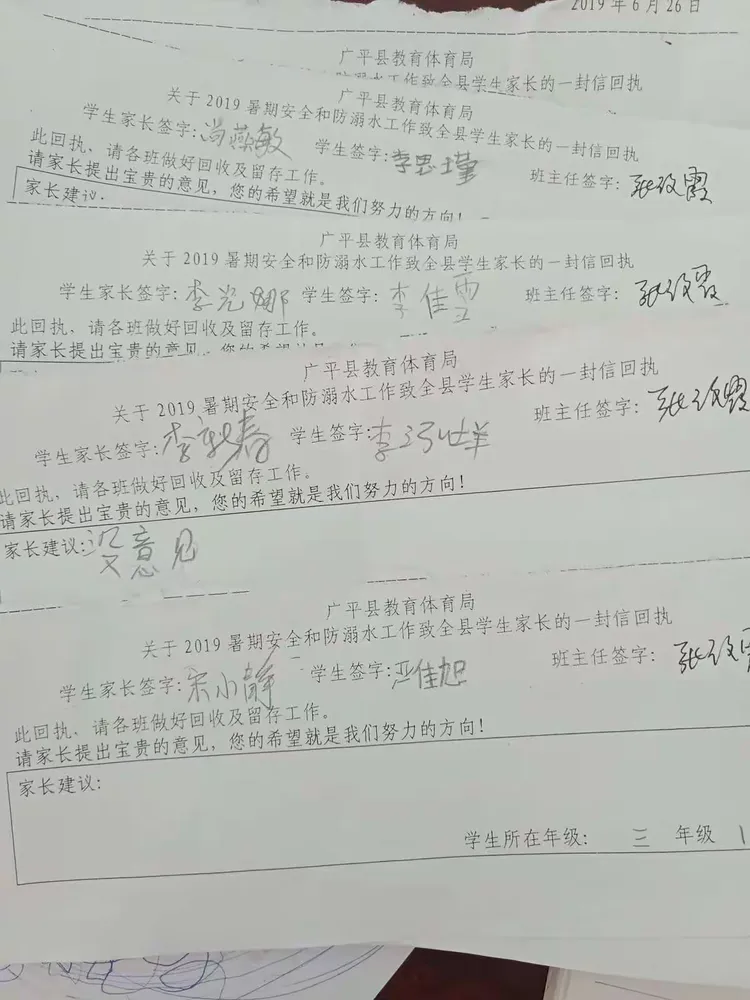 2019年6月26日
广平县教育体育局
防溺水工作致全县学生家长的一封信回执
广平县教育体育局
关于2019暑期安全和防溺水工作致全县学生家长的一封信回执
学生家长签字:尚燕敏 学生签字:李思瑾 班主任签字:
此回执、请各班做好回收及留存工作。
请家长提出宝贵的意见,您的希望就是我们努力的方向!
家长建议.
广平县教育体育局
关于2019暑期安全和防溺水工作致全县学生家长的一封信回执
学生家长签字:李光娜 学生签字:李佳雪 班主任签字:
此回执、请各班做好回收及留存工作。
请家长提出宝贵的意见,您的希望就是
广平县教育体育局
关于2019暑期安全和防溺水工作致全县学生家长的一封信回执
学生家长签字: 学生签字: 班主任签字:
此回执、请各班做好回收及留存工作。
请家长提出宝贵的意见,您的希望就是我们努力的方向!
家长建议:没意见
广平县教育体育局
关于2019暑期安全和防溺水工作致全县学生家长的一封信回执
学生家长签字:宋小静 学生签字:严佳旭 班主任签字:
此回执、请各班做好回收及留存工作。
请家长提出宝贵的意见,您的希望就是我们努力的方向!
家长建议:
学生所在年级: 三 年级 1